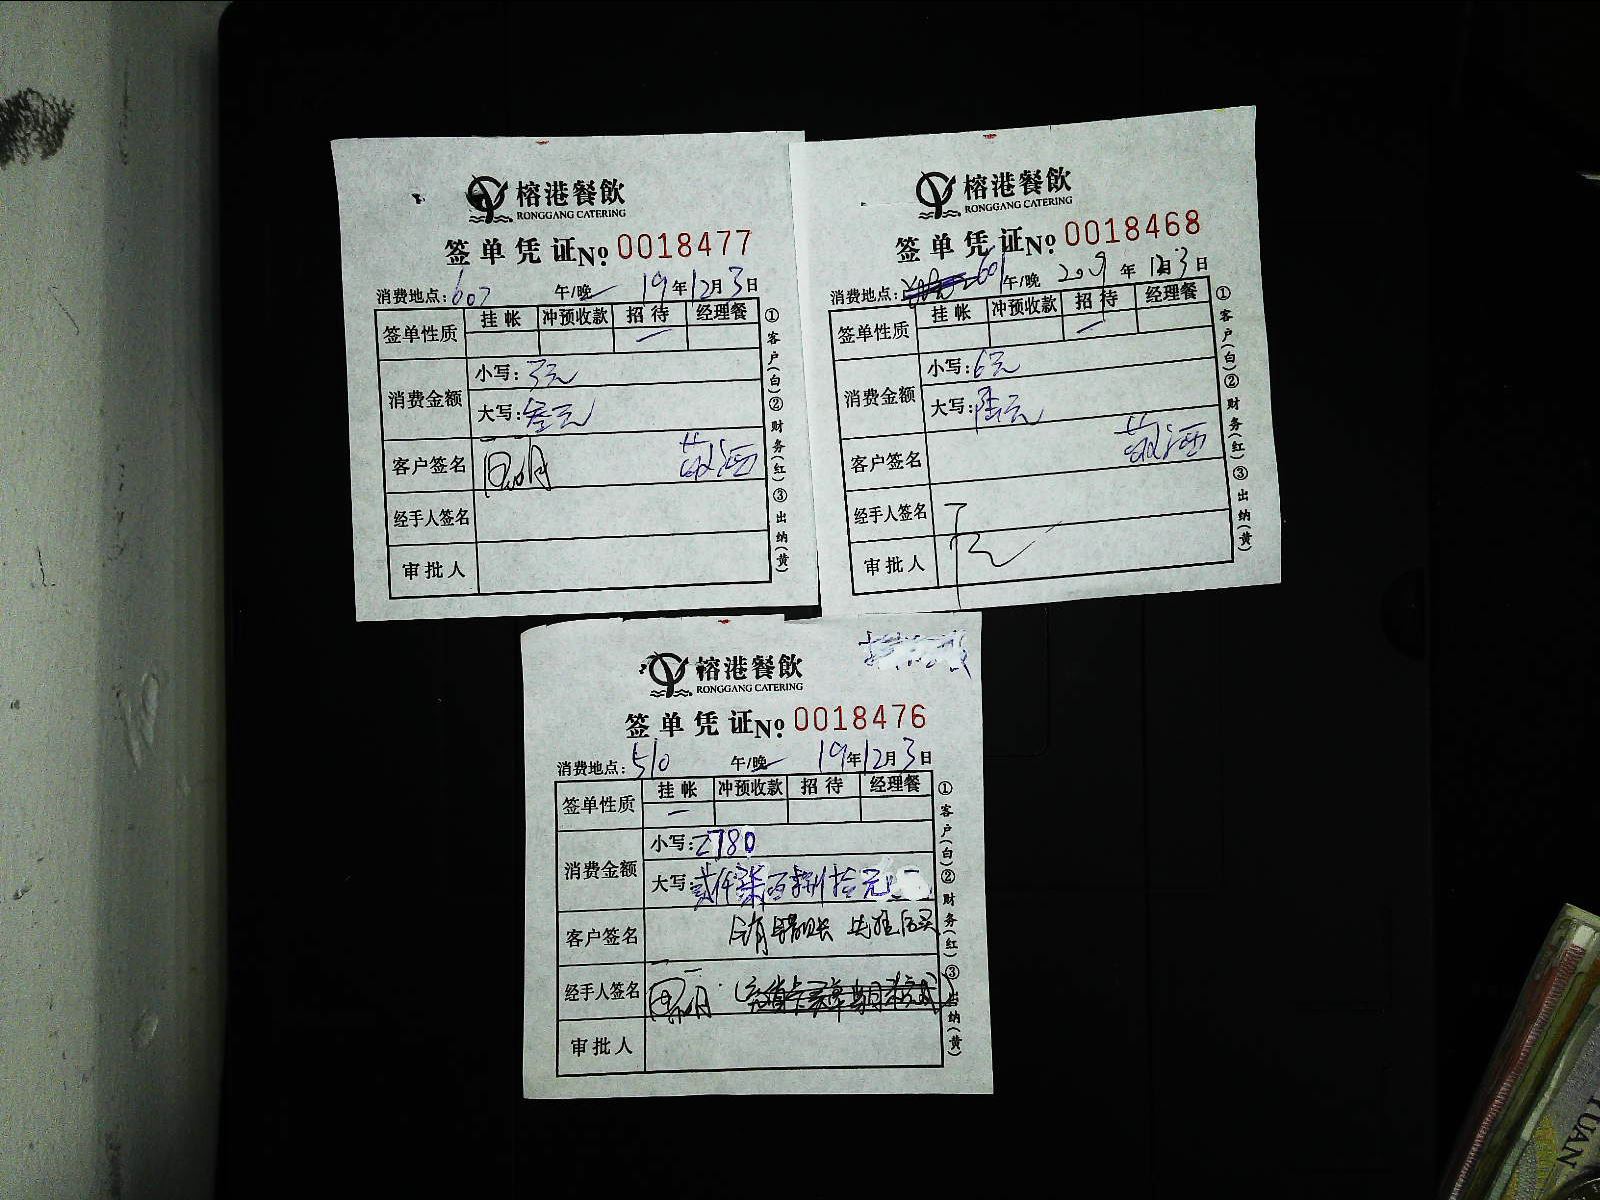 榕港餐飲
RONGGANG CATERING
签单凭证№ 0018477
消费地点:607 午/晚 19年12月3日
签单性质 挂帐 冲预收款 招待 经理餐
消费金额 小写:3元
大写:叁元
客户签名
经手人签名
审批人
①客户(白)②财务(红)③出纳(黄)
榕港餐飲
RONGGANG CATERING
签单凭证№ 0018468
消费地点: 601 午/晚 2019年12月3日
签单性质 挂帐 冲预收款 招待 经理餐
消费金额 小写:6元
大写:陆元
客户签名
经手人签名
审批人
①客户(白)②财务(红)③出纳(黄)
榕港餐飲
RONGGANG CATERING
签单凭证№ 0018476
消费地点:510 午/晚 19年12月3日
签单性质 挂帐 冲预收款 招待 经理餐
消费金额 小写:2780
大写:贰仟柒佰捌拾元
客户签名
经手人签名
审批人
①客户(白)②财务(红)③出纳(黄)
YUAN